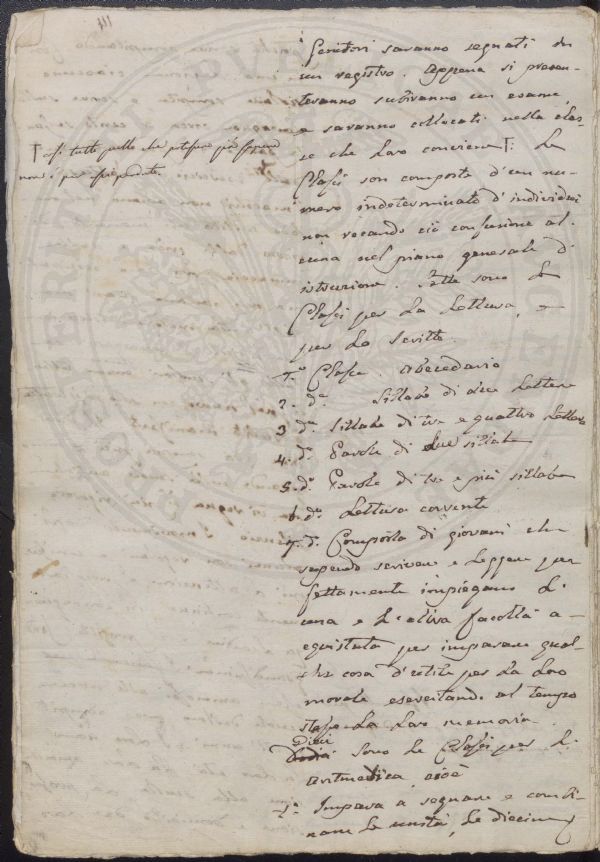 Genitori saranno segnati in
un registro. Appena si presen-
teranno subiranno un esame,
e saranno collocati nella clas-
se che loro conviene †: Le
† tutto quello che
non è più
Classi son composte d'un nu-
mero indeterminato d'individui
non recando ciò confusione al-
cuna nel piano generale d'
istruzione. Sette sono le
Classi per la Lettura, e
per lo Scritto.
1.º Classe. Abecedario
2. dº Sillabe di due Lettere
3 dº Sillabe di tre e quattro Lettere
4. dº Parole di due sillabe
5. dº Parole di tre e più sillabe
6 dº Lettura corrente
7. dº Composta di giovani che
sapendo scrivere e leggere per
fettamente impiegano l'
una e l'altra facoltà a-
cquistata per imparare qual-
che cosa d'utile per la loro
morale esercitando al tempo
stesso la loro memoria.
Dieci
sono le Classi per l'
aritmetica cioè
1ª Impara a segnare e combi-
nare le unità, le diecine